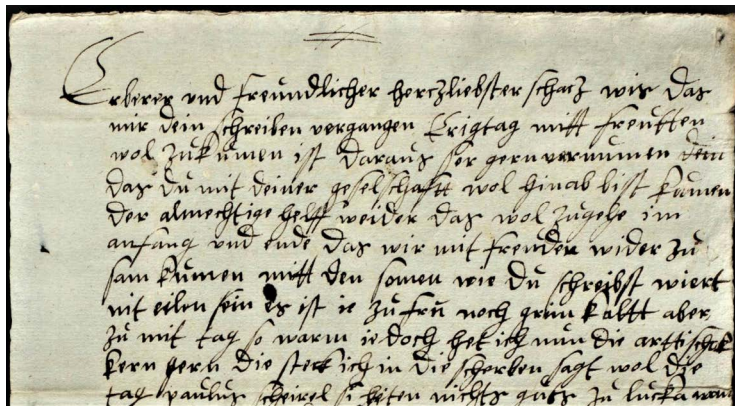 Erberer vnd freundlicher herczliebster schacz wis das
mir dein schreiben vergangen Erigtag mitt freutten
wol zukumen ist daraus ser gern vernumen
das du mit deiner geselschaftt wol hinab bist kumen
der almechtige helff weider das wol zugehe im
anfang vnd ende das wir mit freuden wider zu
sam kumen mitt den somen wie du schreibst wiert
nit eilen sein es ist ie zu fru noch grim kaltt aber
zu mit tag so warm iedoch het ich nun die arttischok
kern gern die steck ich in die scherben sagt wol die
tag paulus scheirel si heten nichts guts zu lucka